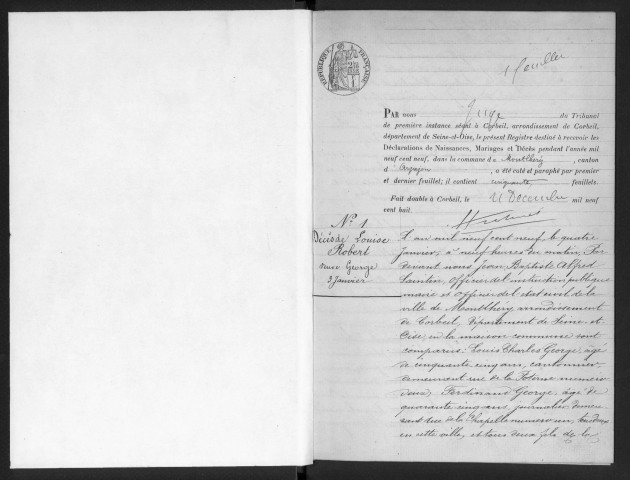 1er feuillet
RÉPUBLIQUE FRANÇAISE
PAR nous Juge du Tribunal
de première instance séant à Corbeil, arrondissement de Corbeil,
département de Seine-et-Oise, le présent Registre destiné à recevoir les
Déclarations de Naissances, Mariages et Décès pendant l'année mil
neuf cent neuf, dans la commune de Montlhéry, canton
d'Arpajon, a été coté et paraphé par premier
et dernier feuillet; il contient cinquante feuillets.
Fait double à Corbeil, le Décembre mil neuf
cent huit.
N° 1
Décès de Louise
Robert
veuve George
3 Janvier
L'an mil neuf cent neuf, le quatre
Janvier, à neuf heures du matin, Par
devant nous Jean Baptiste Alfred
Officier de l'instruction publique
maire et officier de l'état civil de la
ville de Montlhéry, arrondissement
de Corbeil, Département de Seine-et-
Oise, en la maison commune sont
comparus: Louis Charles George, âgé
de cinquante cinq ans, cantonnier
demeurant rue de la Poterne numéro
deux, Ferdinand George, âgé de
quarante cinq ans, journalier demeu
rant rue de la Chapelle numéro un, tous deux
en cette ville, et tous deux fils de la